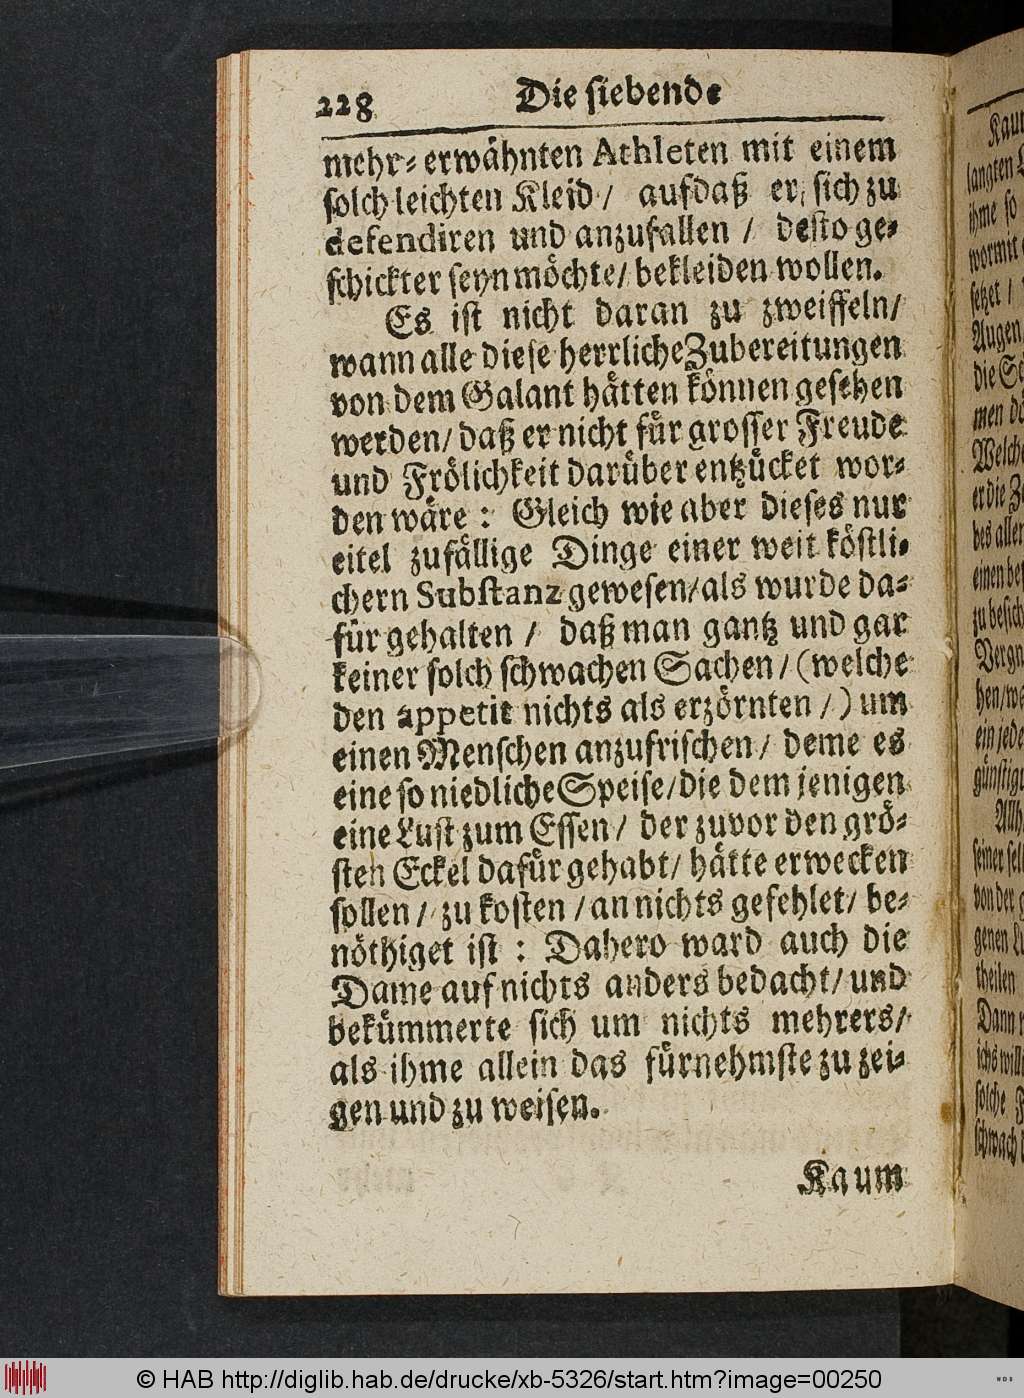 228 Die siebende
mehr-erwähnten Athleten mit einem
solch leichten Kleid / aufdaß er sich zu
defendiren und anzufallen / desto ge-
schickter seyn möchte / bekleiden wollen.
Es ist nicht daran zu zweiffeln /
wann alle diese herrliche Zubereitungen
von dem Galant hätten können gesehen
werden / daß er nicht für grosser Freude
und Frölichkeit darüber entzücket wor-
den wäre : Gleich wie aber dieses nur
eitel zufällige Dinge einer weit köstli-
chern Substanz gewesen / als wurde da-
für gehalten / daß man gantz und gar
keiner solch schwachen Sachen / (welche
den appetit nichts als erzörnten /) um
einen Menschen anzufrischen / deme es
eine so niedliche Speise / die dem jenigen
eine Lust zum Essen / der zuvor den grö-
sten Eckel dafür gehabt / hätte erwecken
sollen / zu kosten / an nichts gefehlet / be-
nöthiget ist : Dahero ward auch die
Dame auf nichts anders bedacht / und
bekümmerte sich um nichts mehrers /
als ihme allein das fürnehmste zu zei-
gen und zu weisen.
Kaum
langten
ihme so
wormit
setzet /
Augen
die
men
Welche
er die
bes aller
einen
zu besich
Vergn
hen / we
ein jede
günstig
seiner sel
von der
genen
theilen
Dann
ichs will
solche
schwach
© HAB http://diglib.hab.de/drucke/xb-5326/start.htm?image=00250